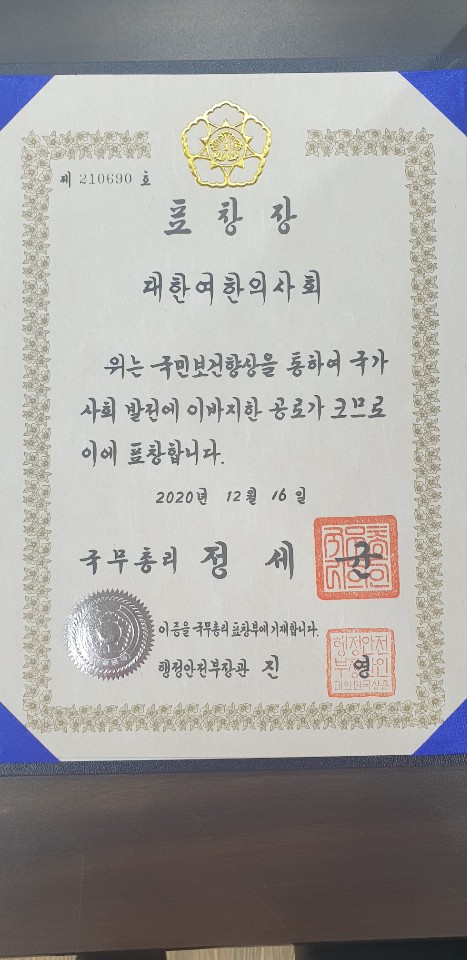 제 210690 호
표창장
대한여한의사회
위는 국민보건향상을 통하여 국가
사회 발전에 이바지한 공로가 크므로
이에 표창합니다.
2020년 12월 16일
국무총리 정세균
이 증을 국무총리 표창부에 기재합니다.
행정안전부장관 진영
행정안전
부장관인